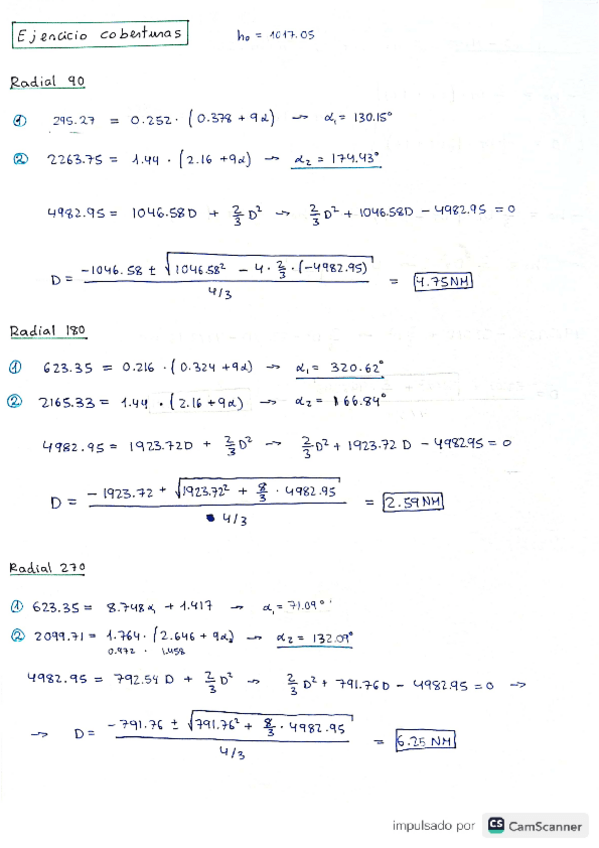 Ejercicio coberturas h₀ = 1017.05
Radial 90
① 295.27 = 0.252 · (0.378 + 9α) → α₁ = 130.15°
② 2263.75 = 1.44 · (2.16 + 9α) → α₂ = 174.43°
4982.95 = 1046.58D + 2/3 D² → 2/3 D² + 1046.58D - 4982.95 = 0
D = (-1046.58 ± √(1046.58² - 4 · 2/3 · (-4982.95))) / (4/3) = 4.75NM
Radial 180
① 623.35 = 0.216 · (0.324 + 9α) → α₁ = 320.62°
② 2165.33 = 1.44 · (2.16 + 9α) → α₂ = 166.84°
4982.95 = 1923.72D + 2/3 D² → 2/3 D² + 1923.72 D - 4982.95 = 0
D = (-1923.72 + √(1923.72² + 8/3 · 4982.95)) / (4/3) = 2.59 NM
Radial 270
① 623.35 = 8.748α₁ + 1.417 → α₁ = 71.09°
② 2099.71 = 1.764 · (2.646 + 9α₂) → α₂ = 132.09°
0.972 · 1.458
4982.95 = 792.54 D + 2/3 D² → 2/3 D² + 791.76D - 4982.95 = 0 →
→ D = (-791.76 ± √(791.76² + 8/3 · 4982.95)) / (4/3) = 6.25 NM
impulsado por CS CamScanner